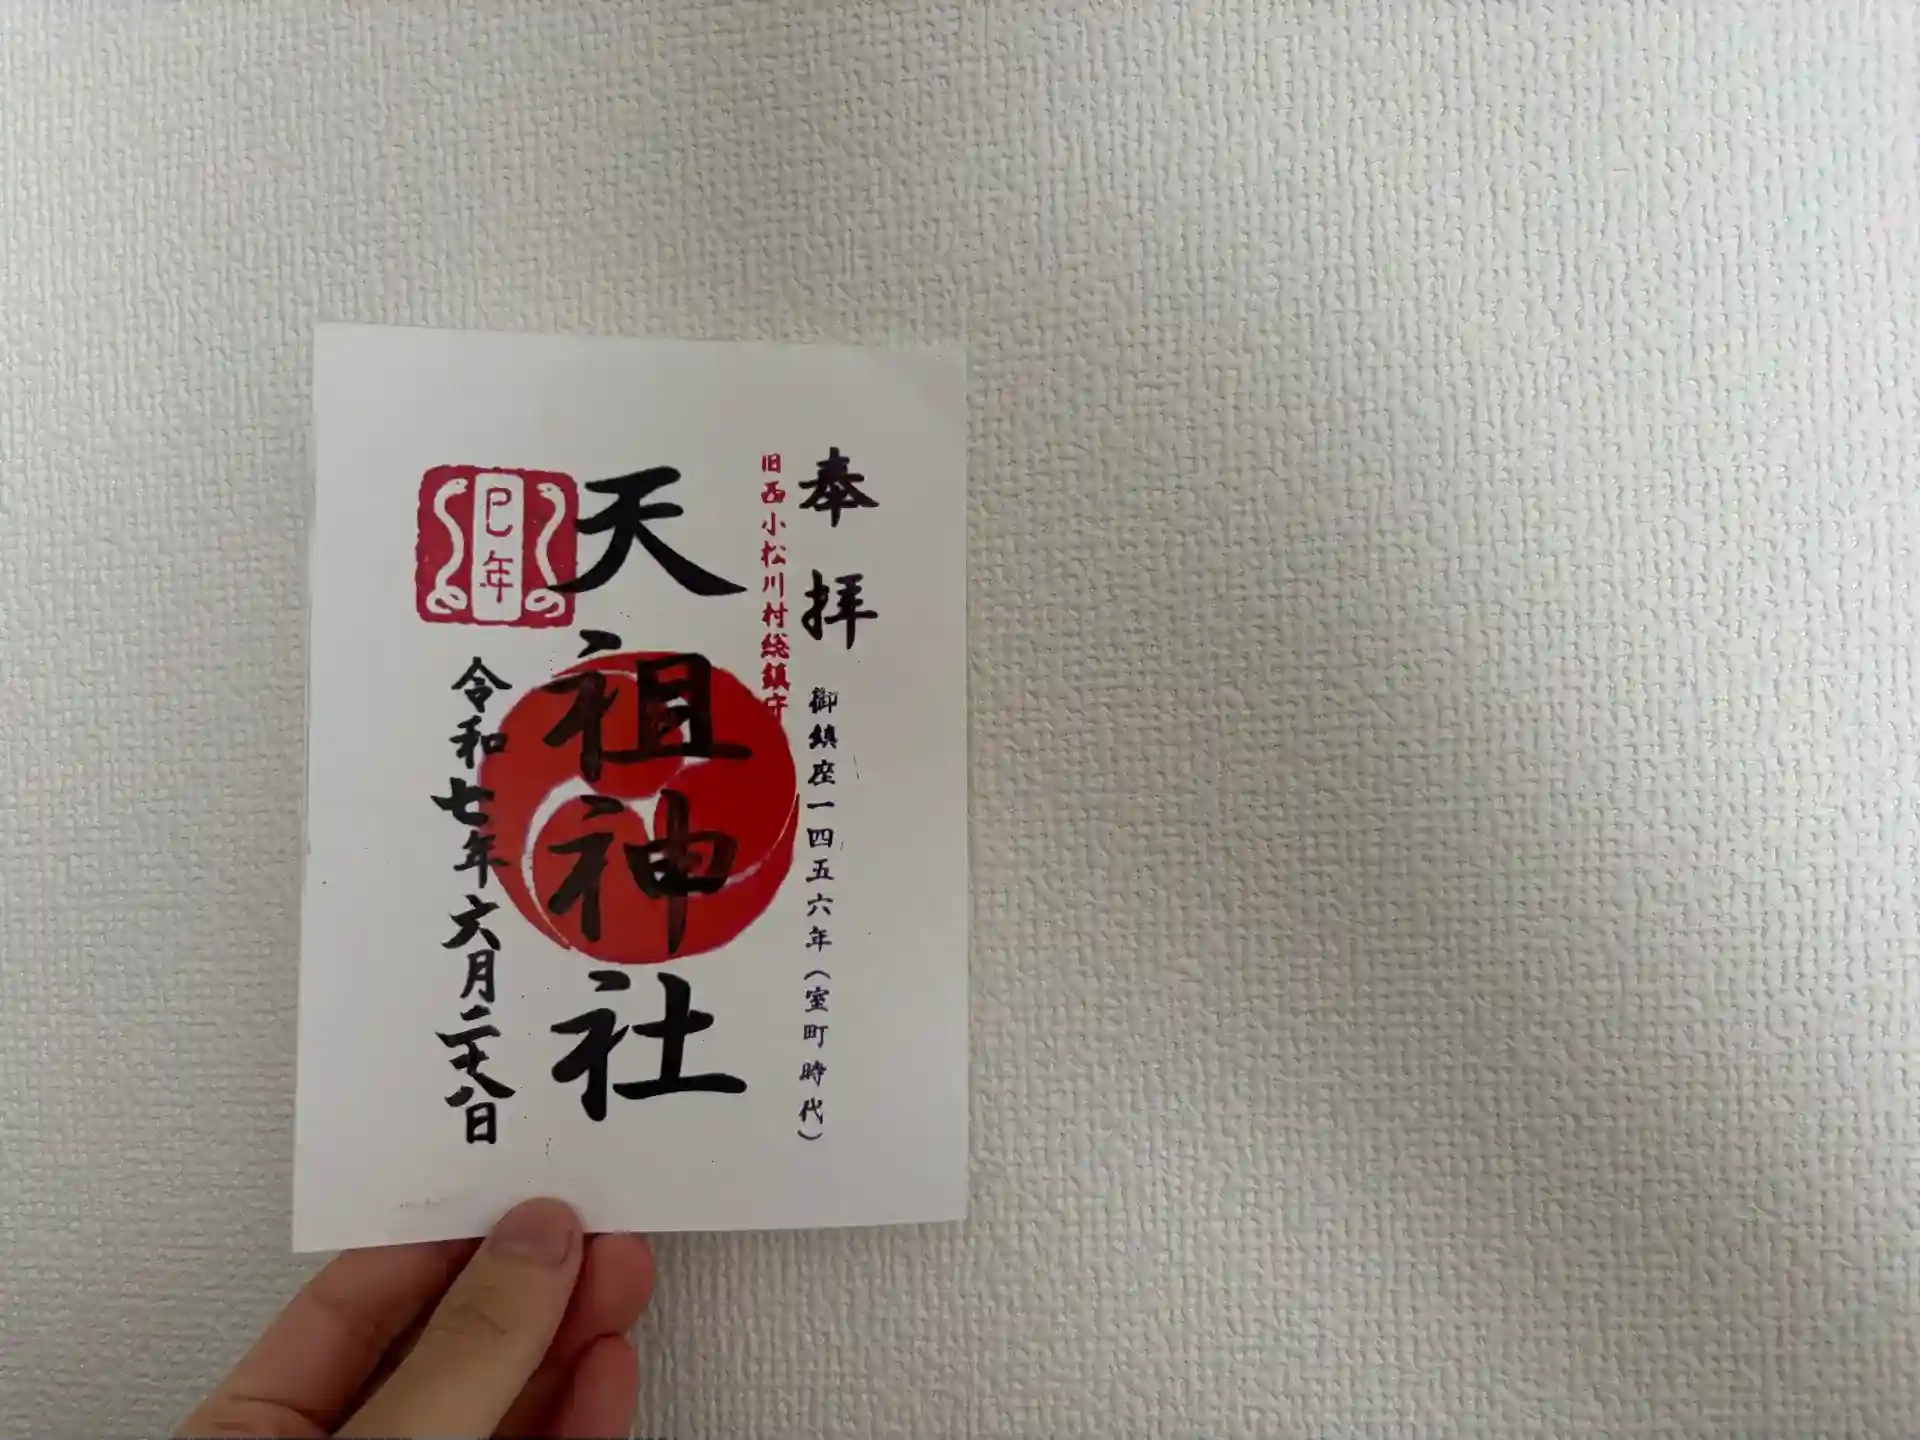 奉拝
御鎮座一四五六年（室町時代）
旧西小松川村総鎮守
天祖神社
巳年
令和七年六月二十八日